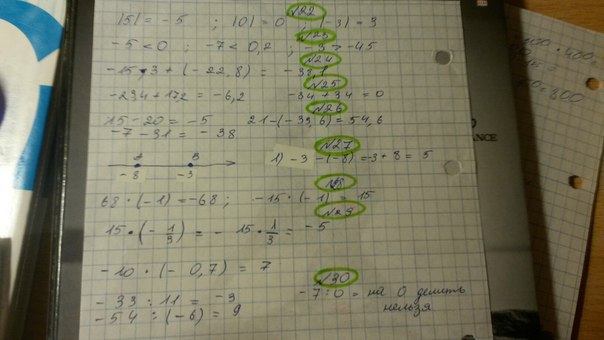 №22
|5| = -5 ; |0| = 0 ; (-3) = 3
№23
-5 < 0 ; -7 < 0,2 ; -3 > -45
№24
-15,3 + (-22,8) = -38,1
№25
-23,4 + 17,2 = -6,2   -34 + 34 = 0
№26
15 - 20 = -5   21 - (-33,6) = 54,6
-7 - 31 = -38
№27
A B
-8 -3
1) -3 - (-8) = -3 + 8 = 5
№28
68 · (-1) = -68 ; -15 · (-1) = 15
№29
15 · (- 1/3) = - 15 · 1/3 = -5
-10 · (- 0,7) = 7
№30
-33 : 11 = -3   -7 : 0 = на 0 делить
-54 : (-6) = 9   нельзя